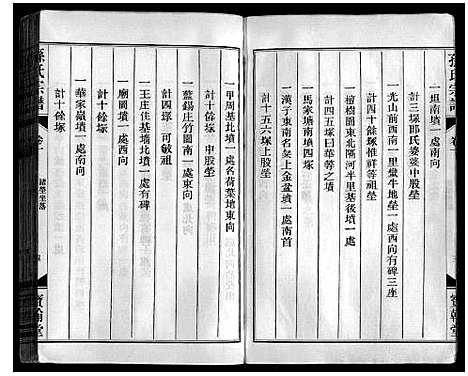 孫氏宗譜 卷一
一坦南墳一處向南
計三塚邵氏婆婆中股塋
一光山前西南一里蠻牛地塋一處西向有碑三座
計四十餘塚惟祥等祖塋
一檀樹園東北隔河半里基後墳一處
計四五塚曰華等之墳
一馬家塘南塝四塚
一漢子東南名喚上金盆墳一處南首
計十五六塚上股塋
一甲周基北墳一處名荷葉地東向
計十餘塚 中股塋
一藍錫庄竹園南一處東向
計四塚 可敏祖
一王庄住基塝北墳一處有碑
一廟園墳一處西向
計十餘塚
一華家嶺墳一處南向
計十餘塚
孫氏宗譜
卷一
諸塋坐落
四
寶翰堂
寶翰堂